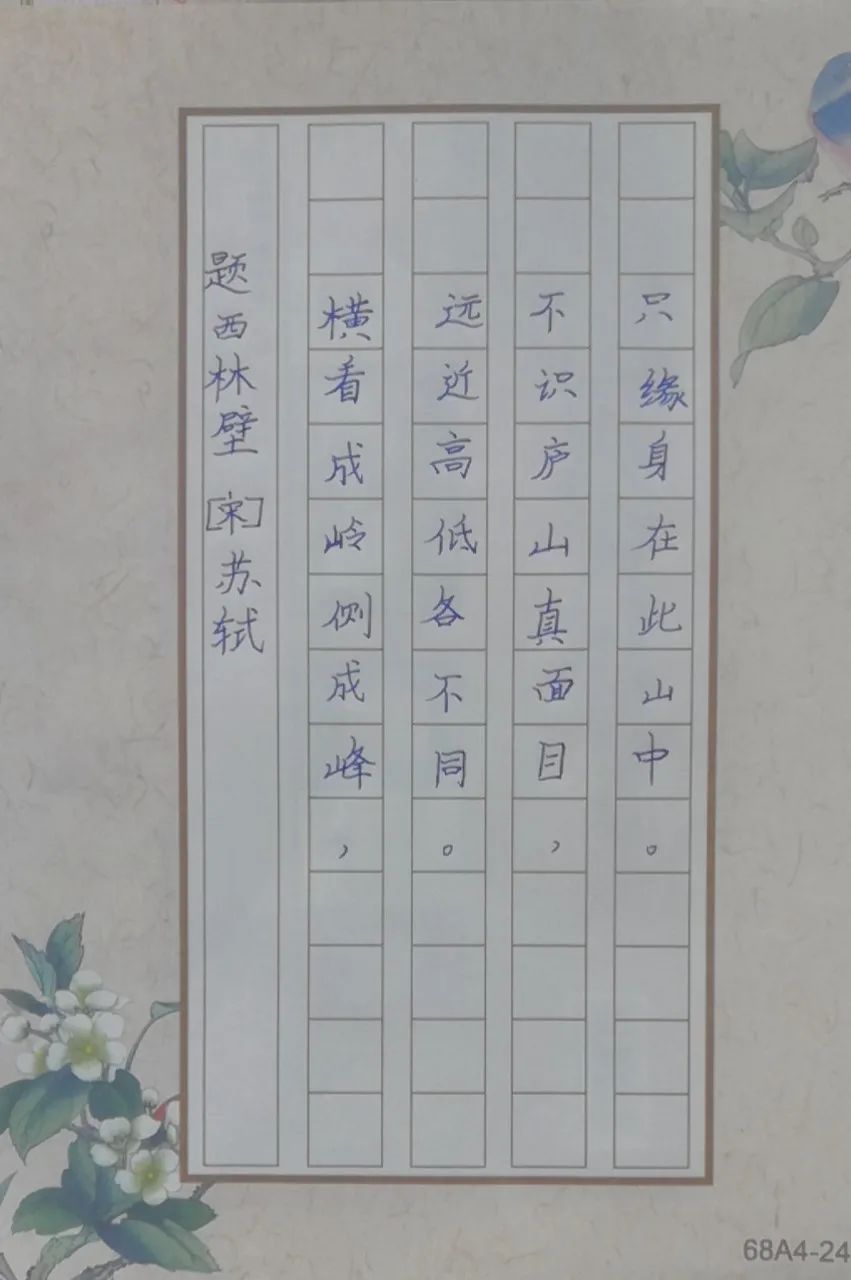 题西林壁 [宋]苏轼
横看成岭侧成峰，
远近高低各不同。
不识庐山真面目，
只缘身在此山中。
68A4-24